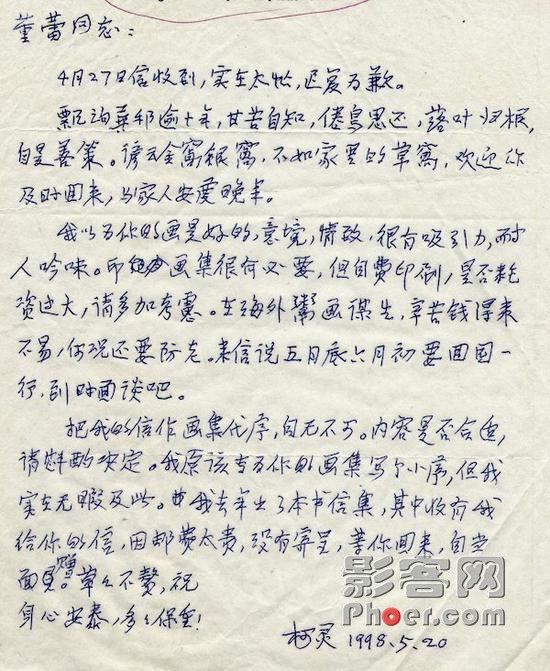 董蕾同志：
4月27日信收到，实在太忙，迟复为歉。
飘泊异邦逾十年，甘苦自知，倦鸟思还，落叶归根，
自是善策。谚云金窝银窝，不如家里的草窝，欢迎你
及时回来，与家人安度晚年。
我以为你的画是好的，意境，情致，很有吸引力，耐
人吟味。印画集很有必要，但自费印刷，是否耗
资过大，请多加考虑。在海外鬻画谋生，辛苦钱得来
不易，何况还要防老。来信说五月底六月初要回国一
行，到时面谈吧。
把我的信作画集代序，自无不可。内容是否合适，
请斟酌决定。我原该专为你的画集写个小序，但我
实在无暇及此。我去年出了本书信集，其中收有我
给你的信，因邮费太贵，没有寄呈，等你回来，自当
面赠。草草不罄，祝
身心安泰，多多保重！
柯灵 1998.5.20
影客网
Phoer.com